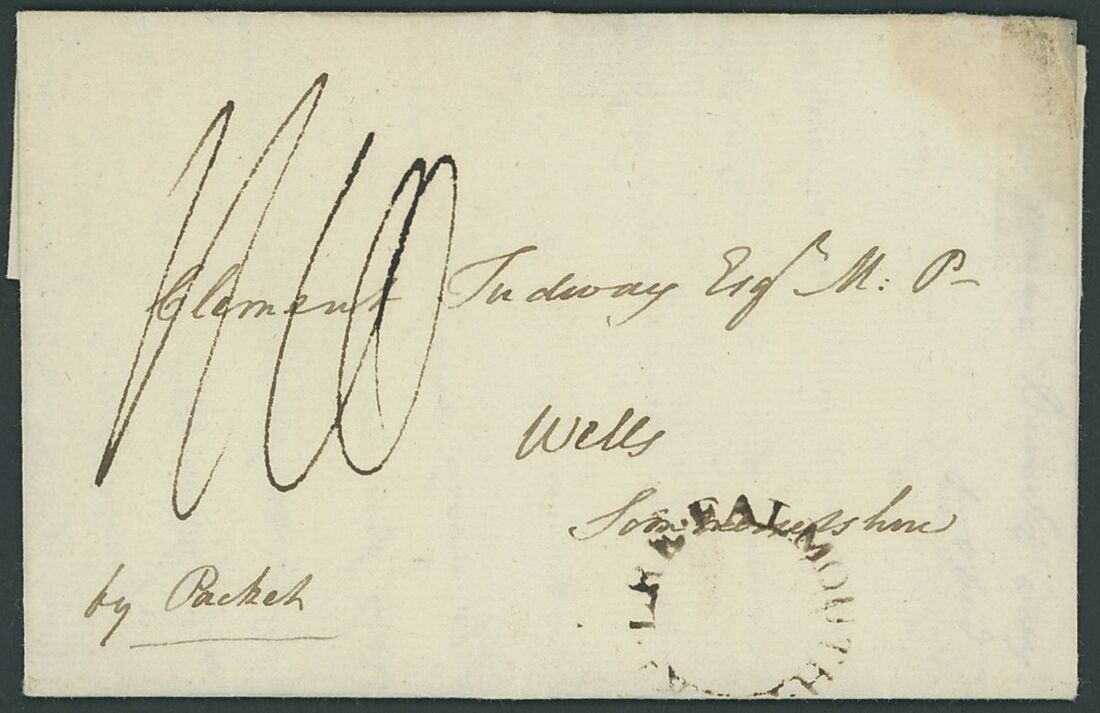 Clement Tudway Esqr. M: P—
Wells
Sommersetshire
by Packet
FALMOUTH